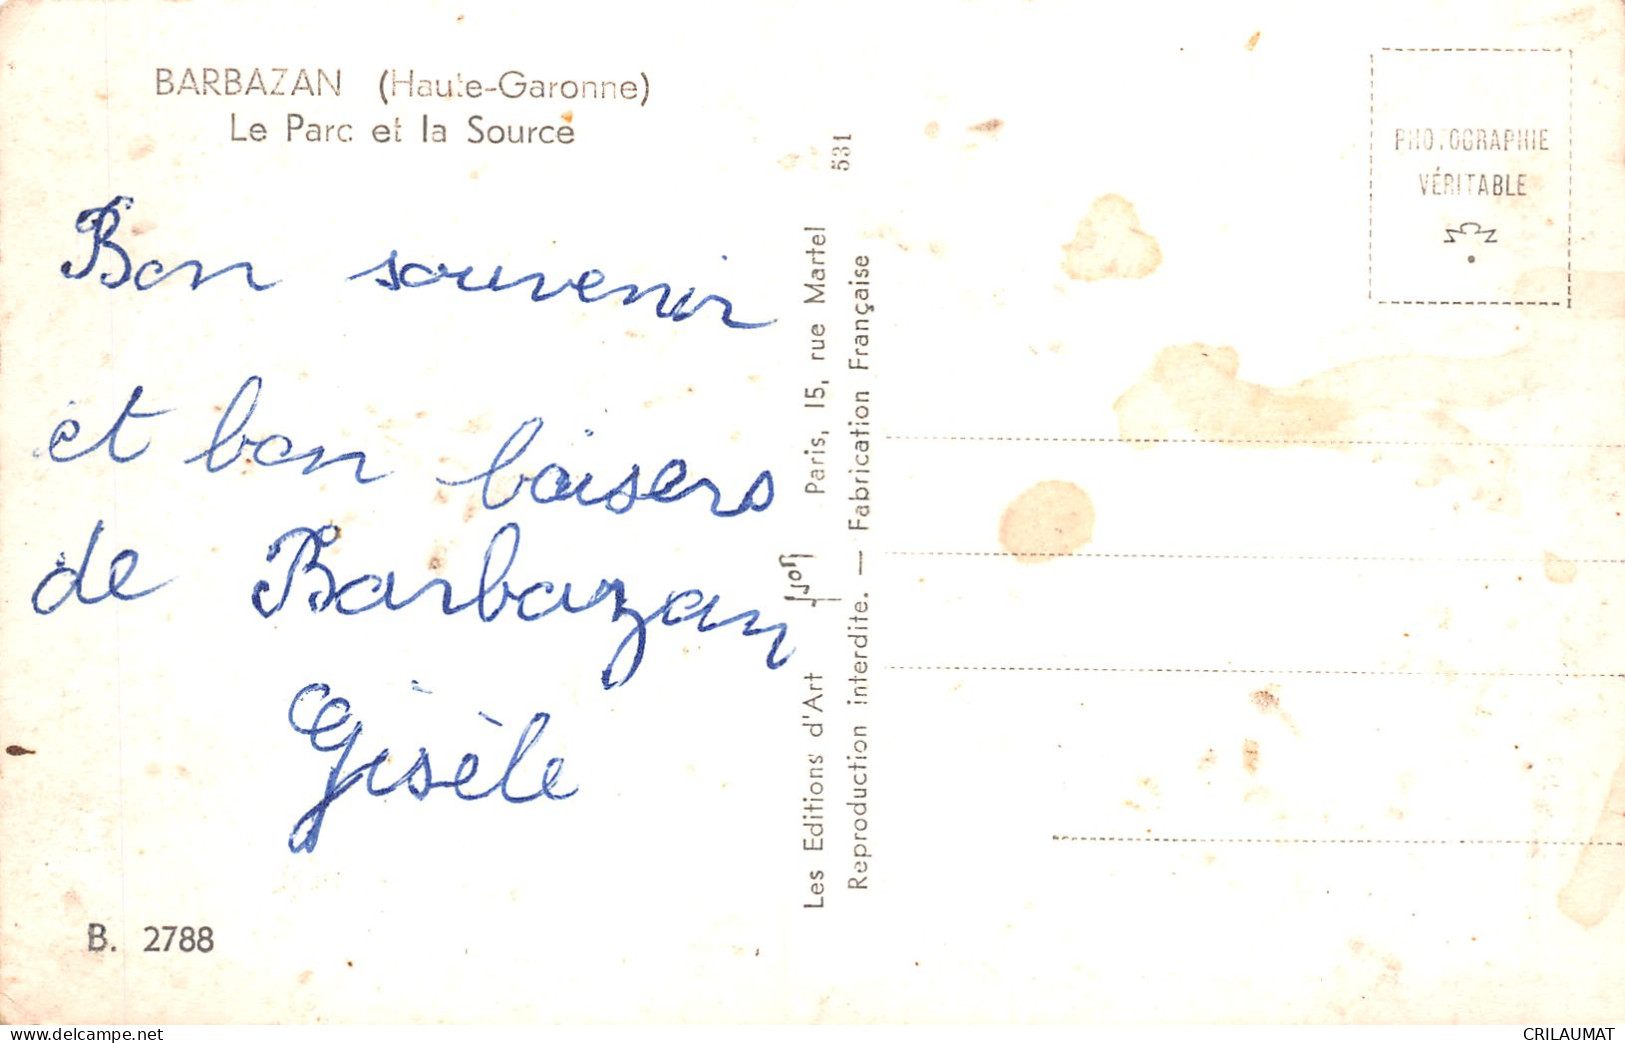 BARBAZAN (Haute-Garonne)
Le Parc et la Source
Bon souvenir
et bon baisers
de Barbazan
Gisèle
B. 2788
Les Editions d'Art Yvon Paris, 15, rue Martel
531
Reproduction interdite. — Fabrication Française
PHOTOGRAPHIE
VÉRITABLE
www.delcampe.net
CRILAUMAT